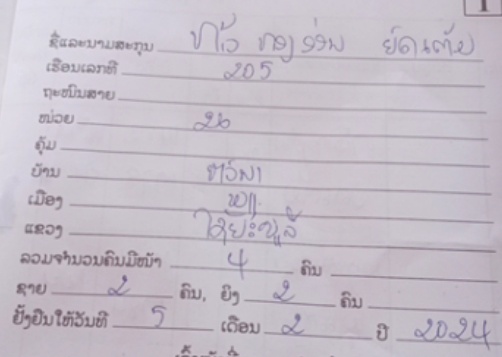 1
ຊື່ແລະນາມສະກຸນ ທ້າວ
ເຮືອນເລກທີ 205
ຖະໜົນສາຍ
ໜ່ວຍ 26
ຄຸ້ມ
ບ້ານ
ເມືອງ
ແຂວງ ໄຊຍະບູລີ
ລວມຈຳນວນຄົນມີໜ້າ 4 ຄົນ
ຊາຍ 2 ຄົນ, ຍິງ 2 ຄົນ
ຢັ້ງຢືນໃຫ້ວັນທີ 5 ເດືອນ 2 ປີ 2024